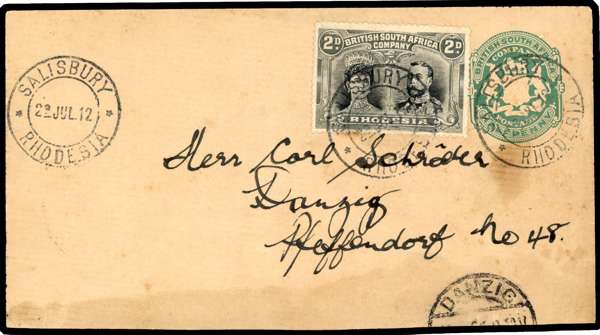 SALISBURY
22 JUL.12
* RHODESIA *
2D. BRITISH SOUTH AFRICA 2D.
COMPANY
RHODESIA
BRITISH SOUTH AFRICA
COMPANY
POSTAGE
PENNY
RHODESIA
Herr Carl Schröder
Danzig
Pfeffendorf No 48.
DANZIG